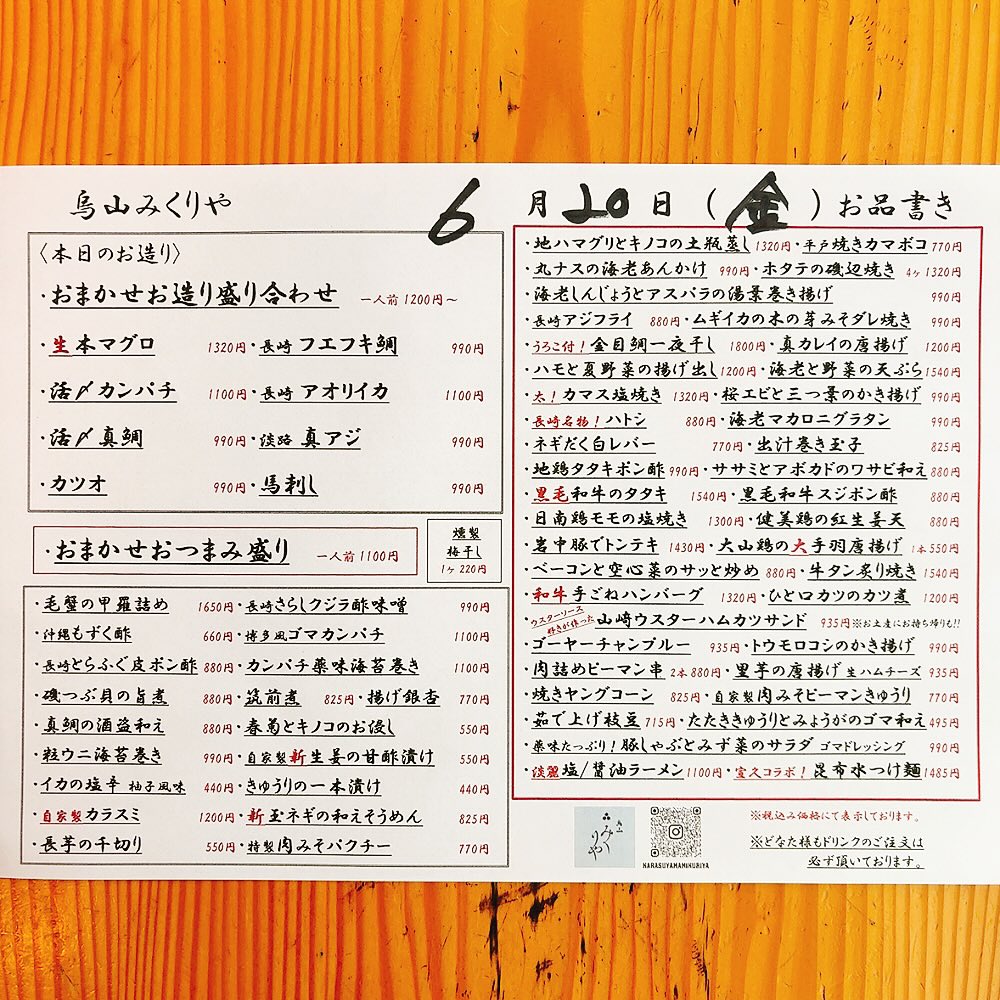 烏山みくりや
6月20日(金)お品書き
〈本日のお造り〉
・おまかせお造り盛り合わせ 一人前1200円〜
・生本マグロ 1320円・長崎 フエフキ鯛 990円
・活〆カンパチ 1100円・長崎 アオリイカ 1100円
・活〆真鯛 990円・淡路 真アジ 990円
・カツオ 990円・馬刺し 990円
・おまかせおつまみ盛り 一人前1100円
燻製
梅干し
1ヶ220円
・毛蟹の甲羅詰め 1650円・長崎さらしクジラ酢味噌 990円
・沖縄もずく酢 660円・博多風ゴマカンパチ 1100円
・長崎とらふぐ皮ポン酢 880円・カンパチ薬味海苔巻き 1100円
・磯つぶ貝の旨煮 880円・筑前煮 825円・揚げ銀杏 770円
・真鯛の酒盗和え 880円・春菊とキノコのお浸し 550円
・粒ウニ海苔巻き 990円・自家製新生姜の甘酢漬け 550円
・イカの塩辛 柚子風味 440円・きゅうりの一本漬け 440円
・自家製カラスミ 1200円・新玉ネギの和えそうめん 825円
・長芋の千切り 550円・特製肉みそパクチー 770円
・地ハマグリとキノコの土瓶蒸し 1320円・平戸焼きカマボコ 770円
・丸ナスの海老あんかけ 990円・ホタテの磯辺焼き 4ヶ1320円
・海老しんじょうとアスパラの湯葉巻き揚げ 990円
・長崎アジフライ 880円・ムギイカの木の芽みそダレ焼き 990円
・うろこ付!金目鯛一夜干し 1800円・真カレイの唐揚げ 1200円
・ハモと夏野菜の揚げ出し 1200円・海老と野菜の天ぷら 1540円
・太!カマス塩焼き 1320円・桜エビと三つ葉のかき揚げ 990円
・長崎名物!ハトシ 880円・海老マカロニグラタン 990円
・ネギだく白レバー 770円・出汁巻き玉子 825円
・地鶏タタキポン酢 990円・ササミとアボカドのワサビ和え 880円
・黒毛和牛のタタキ 1540円・黒毛和牛スジポン酢 880円
・日南鶏モモの塩焼き 1300円・健美鶏の紅生姜天 880円
・岩中豚でトンテキ 1430円・大山鶏の大手羽唐揚げ 1本550円
・ベーコンと空心菜のサッと炒め 880円・牛タン炙り焼き 1540円
・和牛手ごねハンバーグ 1320円・ひと口カツのカツ煮 1200円
・ウスターソース好きが作った 山崎ウスターハムカツサンド 935円※お土産にお持ち帰りも!!
・ゴーヤーチャンプルー 935円・トウモロコシのかき揚げ 990円
・肉詰めピーマン串 2本880円・里芋の唐揚げ 生ハムチーズ 935円
・焼きヤングコーン 825円・自家製肉みそピーマンきゅうり 770円
・茹で上げ枝豆 715円・たたききゅうりとみょうがのゴマ和え 495円
・薬味たっぷり!豚しゃぶとみず菜のサラダ ゴマドレッシング 990円
・淡麗塩/醤油ラーメン 1100円・宝久コラボ!昆布水つけ麺 1485円
みくりや
KARASUYAMAMIKURIYA
※税込み価格にて表示しております。
※どなた様もドリンクのご注文は
必ず頂いております。